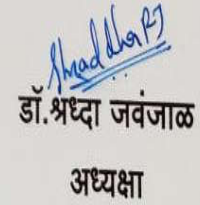 ShraddhaRJ
डॉ.श्रध्दा जवंजाळ
अध्यक्षा